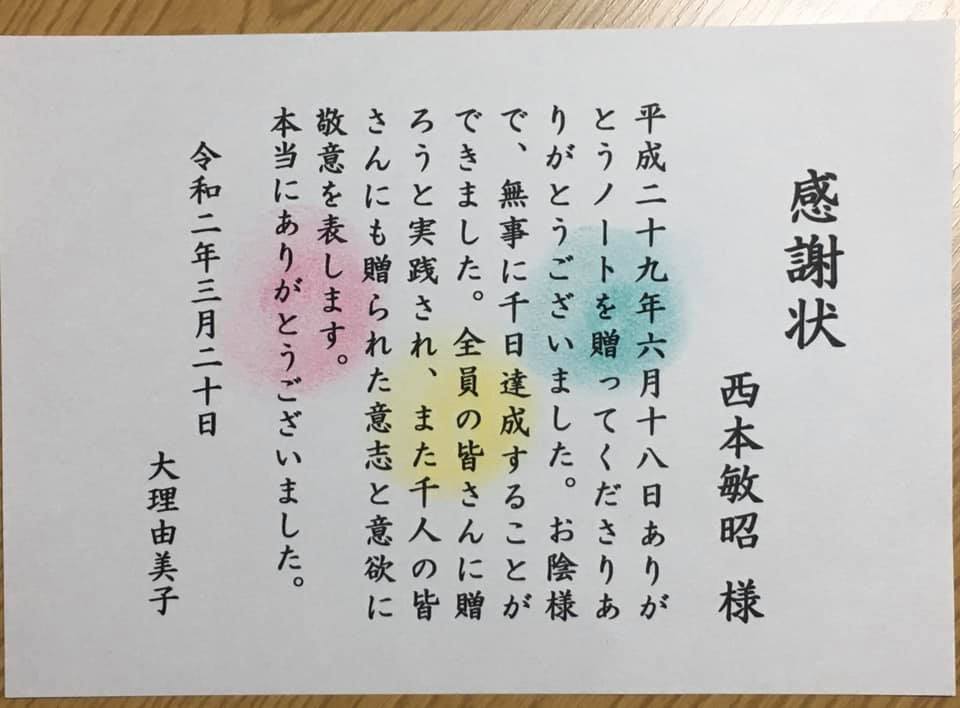 感謝状
西本敏昭 様
平成二十九年六月十八日ありが
とうノートを贈ってくださりあ
りがとうございました。お陰様
で、無事に千日達成することが
できました。全員の皆さんに贈
ろうと実践され、また千人の皆
さんにも贈られた意志と意欲に
敬意を表します。
本当にありがとうございました。
令和二年三月二十日
大理由美子